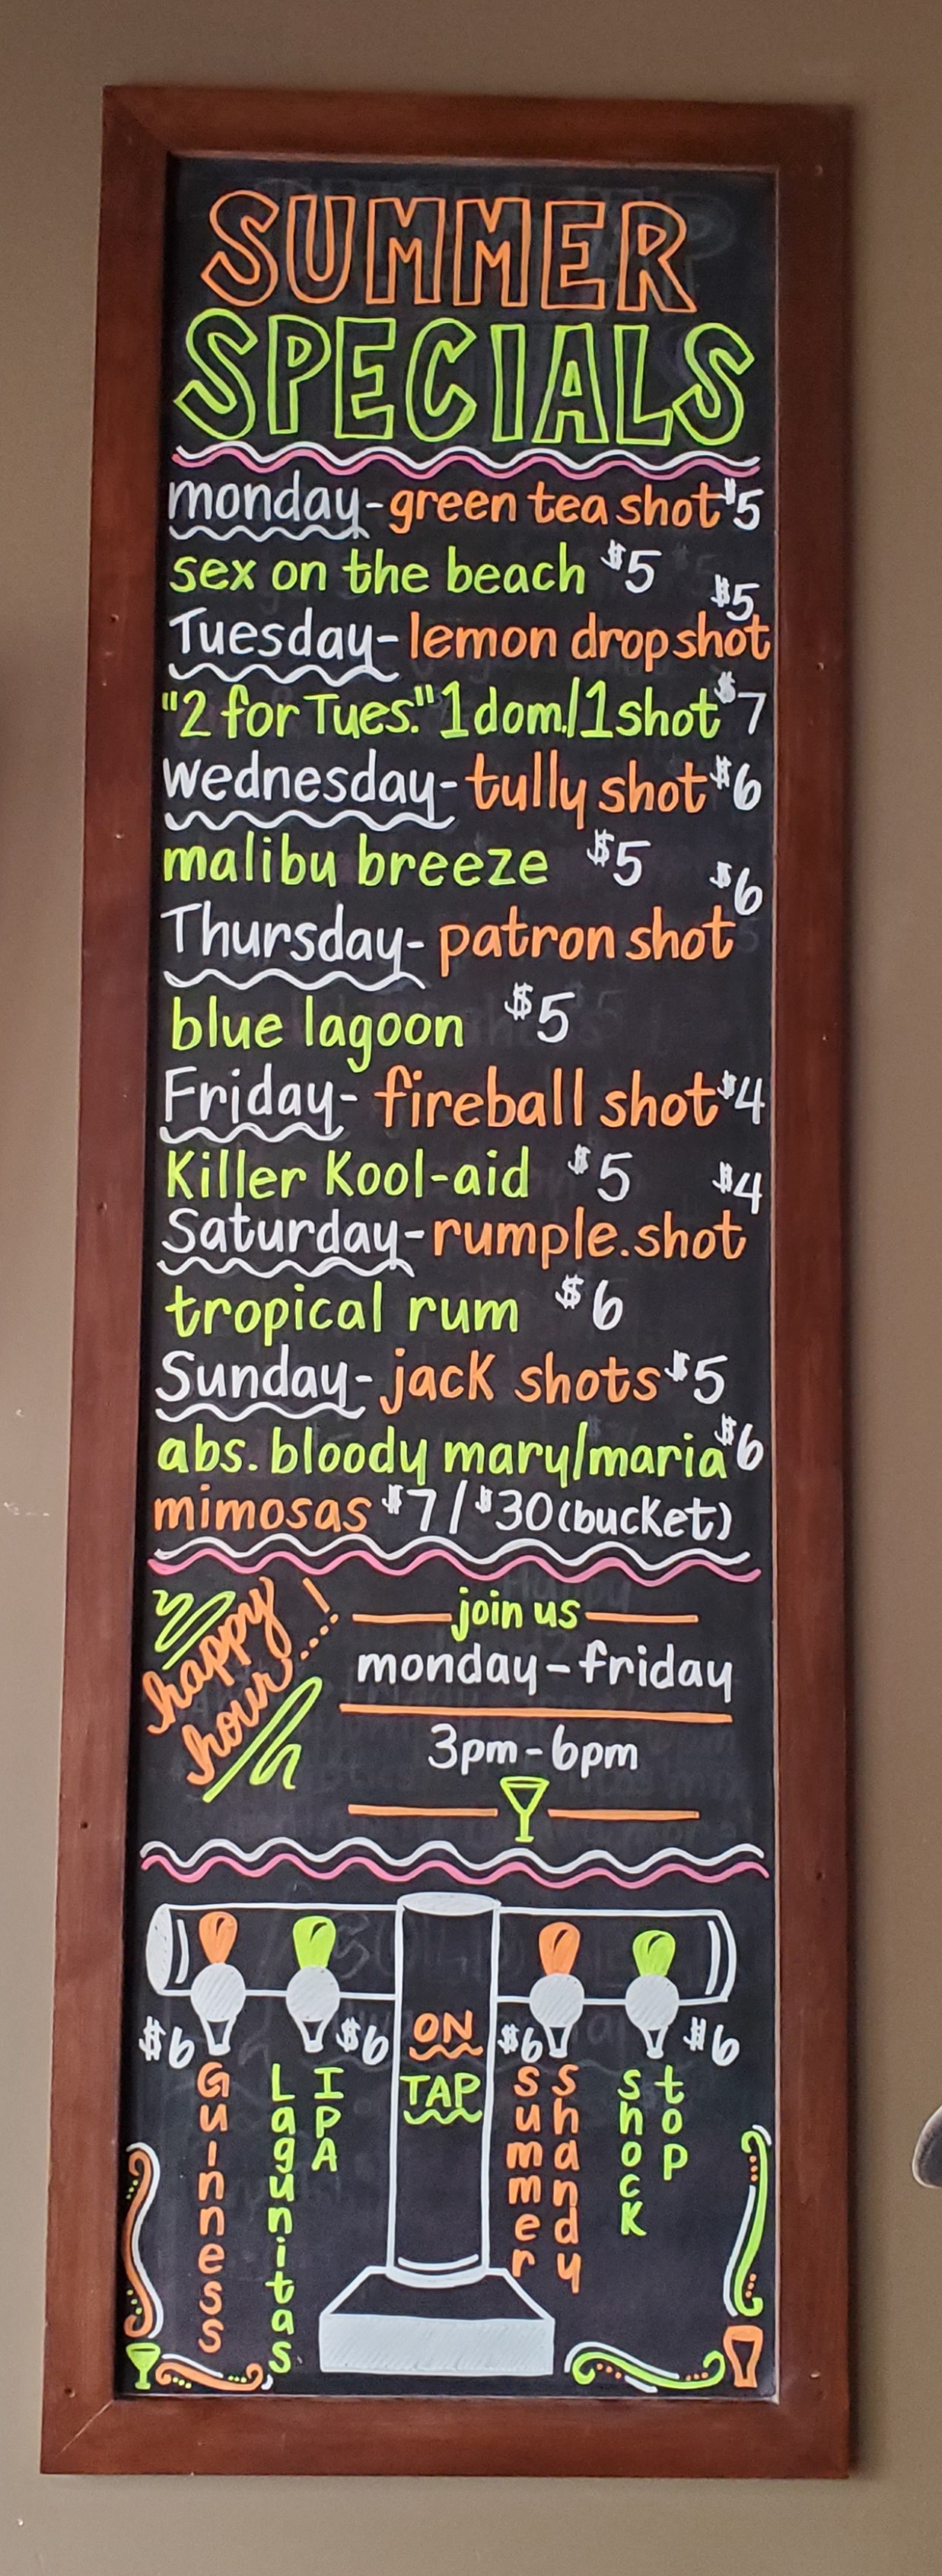 SUMMER
SPECIALS
monday- green tea shot $5
sex on the beach $5
Tuesday- lemon drop shot $5
"2 for Tues." 1 dom./1 shot $7
Wednesday- tully shot $6
malibu breeze $5
Thursday- patron shot $6
blue lagoon $5
Friday- fireball shot $4
Killer Kool-aid $5
Saturday- rumple. shot $4
tropical rum $6
Sunday- jack shots $5
abs. bloody mary/maria $6
mimosas $7/$30 (bucket)
happy
hour...!
join us
monday-friday
3pm-6pm
ON
TAP
$6
Guinness
$6
Lagunitas
IPA
$6
summer
shandy
$6
shock
top